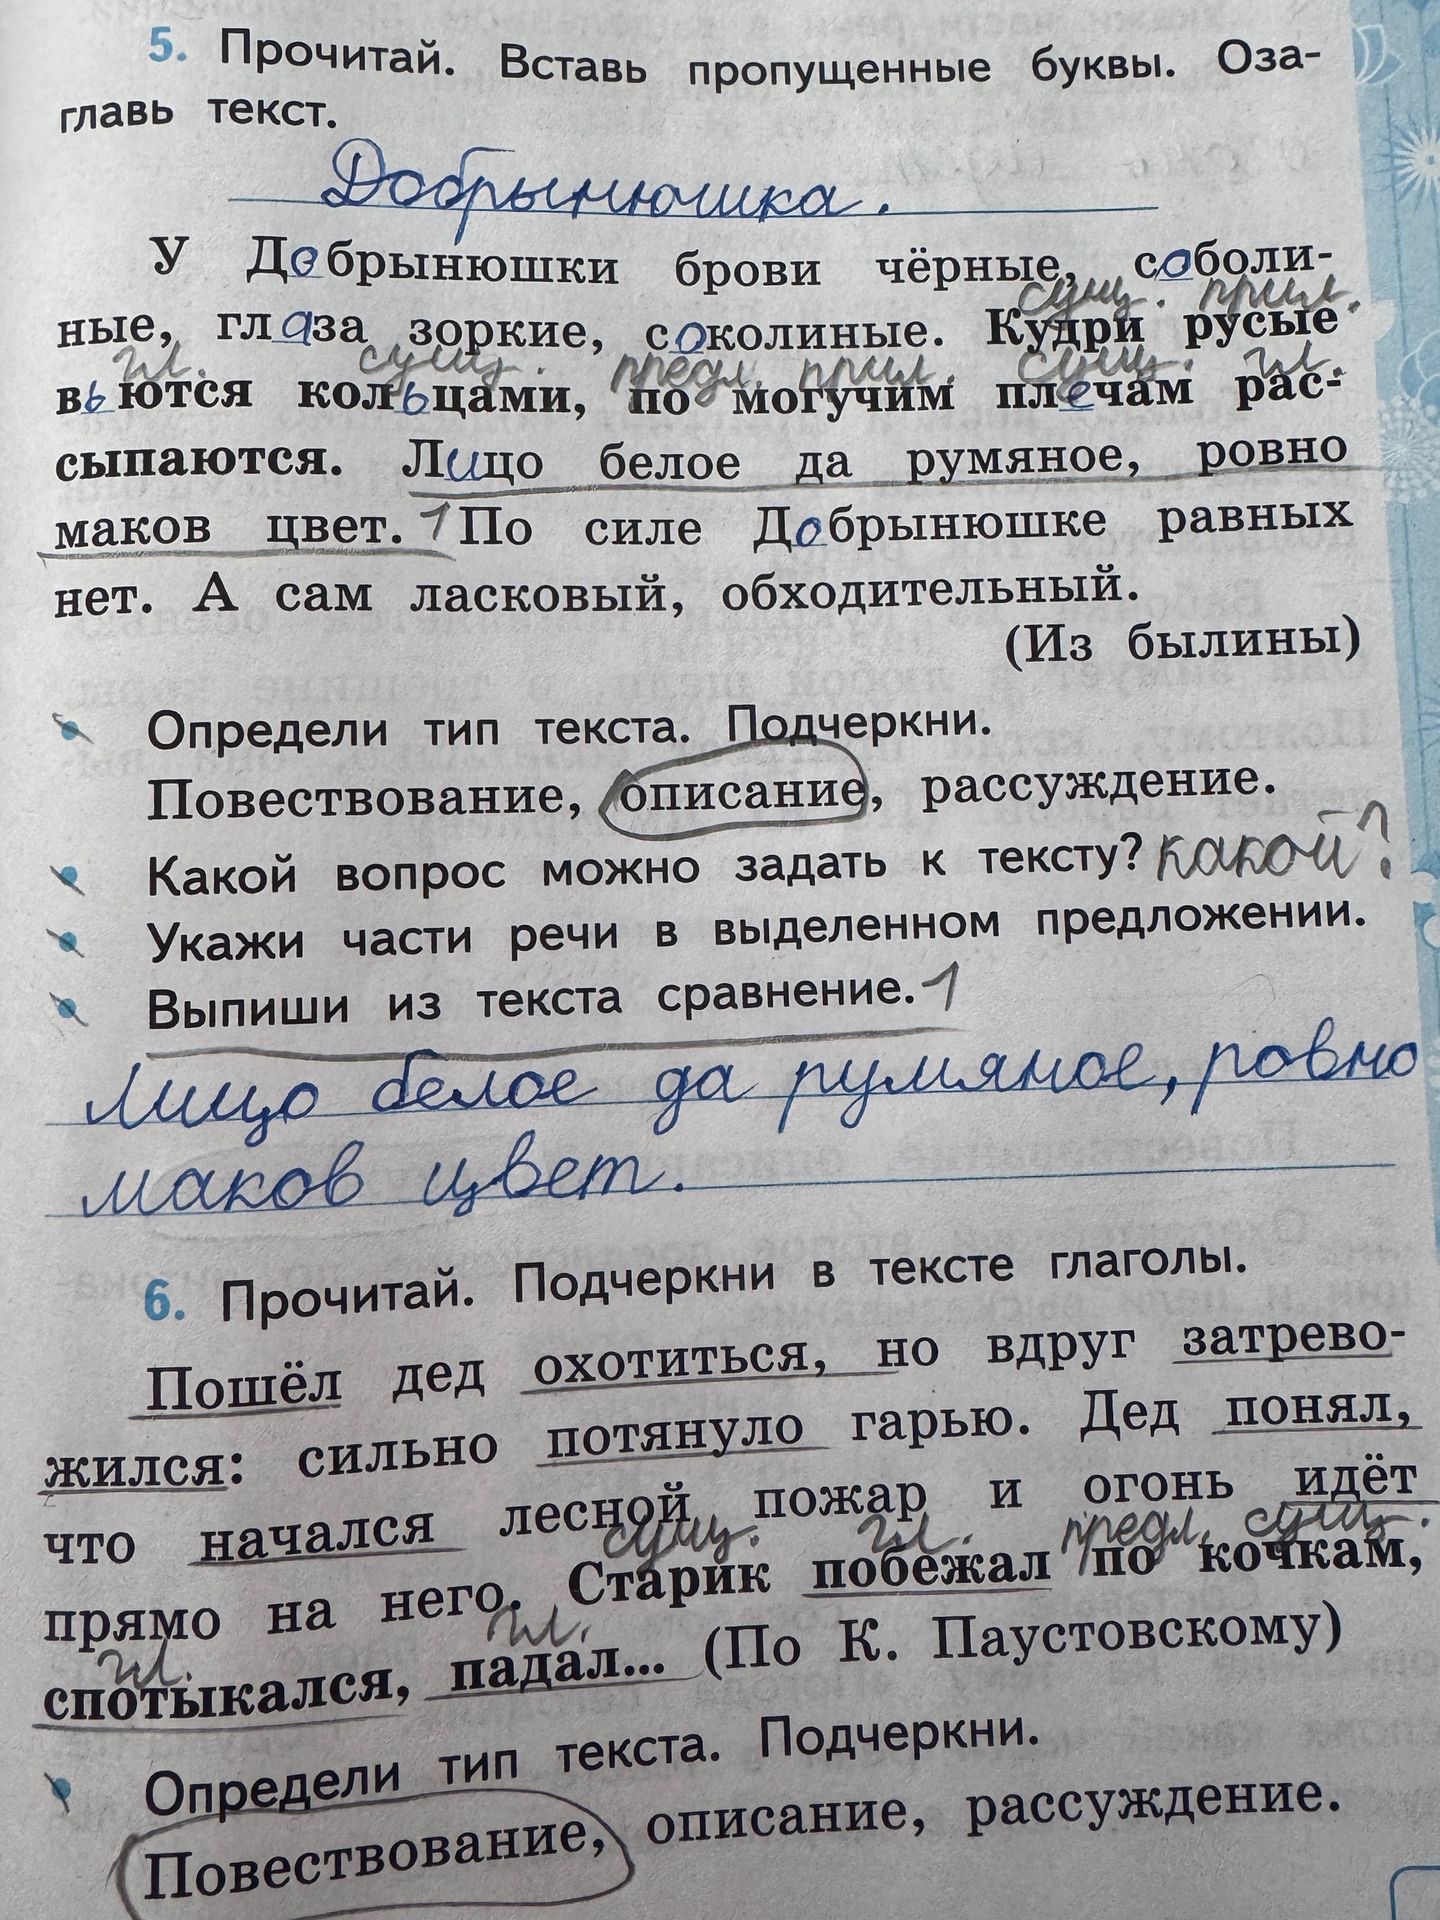 5. Прочитай. Вставь пропущенные буквы. Оза-
главь текст.
Добрынюшка.
У Добрынюшки брови чёрные, соболи-
сущ. прил.
ные, глаза зоркие, соколиные. Кудри русые
гл. сущ. предл. прил. сущ. гл.
вьются кольцами, по могучим плечам рас-
сыпаются. Лицо белое да румяное, ровно
маков цвет. 1 По силе Добрынюшке равных
нет. А сам ласковый, обходительный.
(Из былины)
Определи тип текста. Подчеркни.
Повествование, описание, рассуждение.
Какой вопрос можно задать к тексту? какой?
Укажи части речи в выделенном предложении.
Выпиши из текста сравнение. 1
Лицо белое да румяное, ровно
маков цвет.
6. Прочитай. Подчеркни в тексте глаголы.
Пошёл дед охотиться, но вдруг затрево-
жился: сильно потянуло гарью. Дед понял,
что начался лесной пожар и огонь идёт
сущ. гл. предл. сущ.
прямо на него. Старик побежал по кочкам,
гл. гл.
спотыкался, падал... (По К. Паустовскому)
Определи тип текста. Подчеркни.
Повествование, описание, рассуждение.